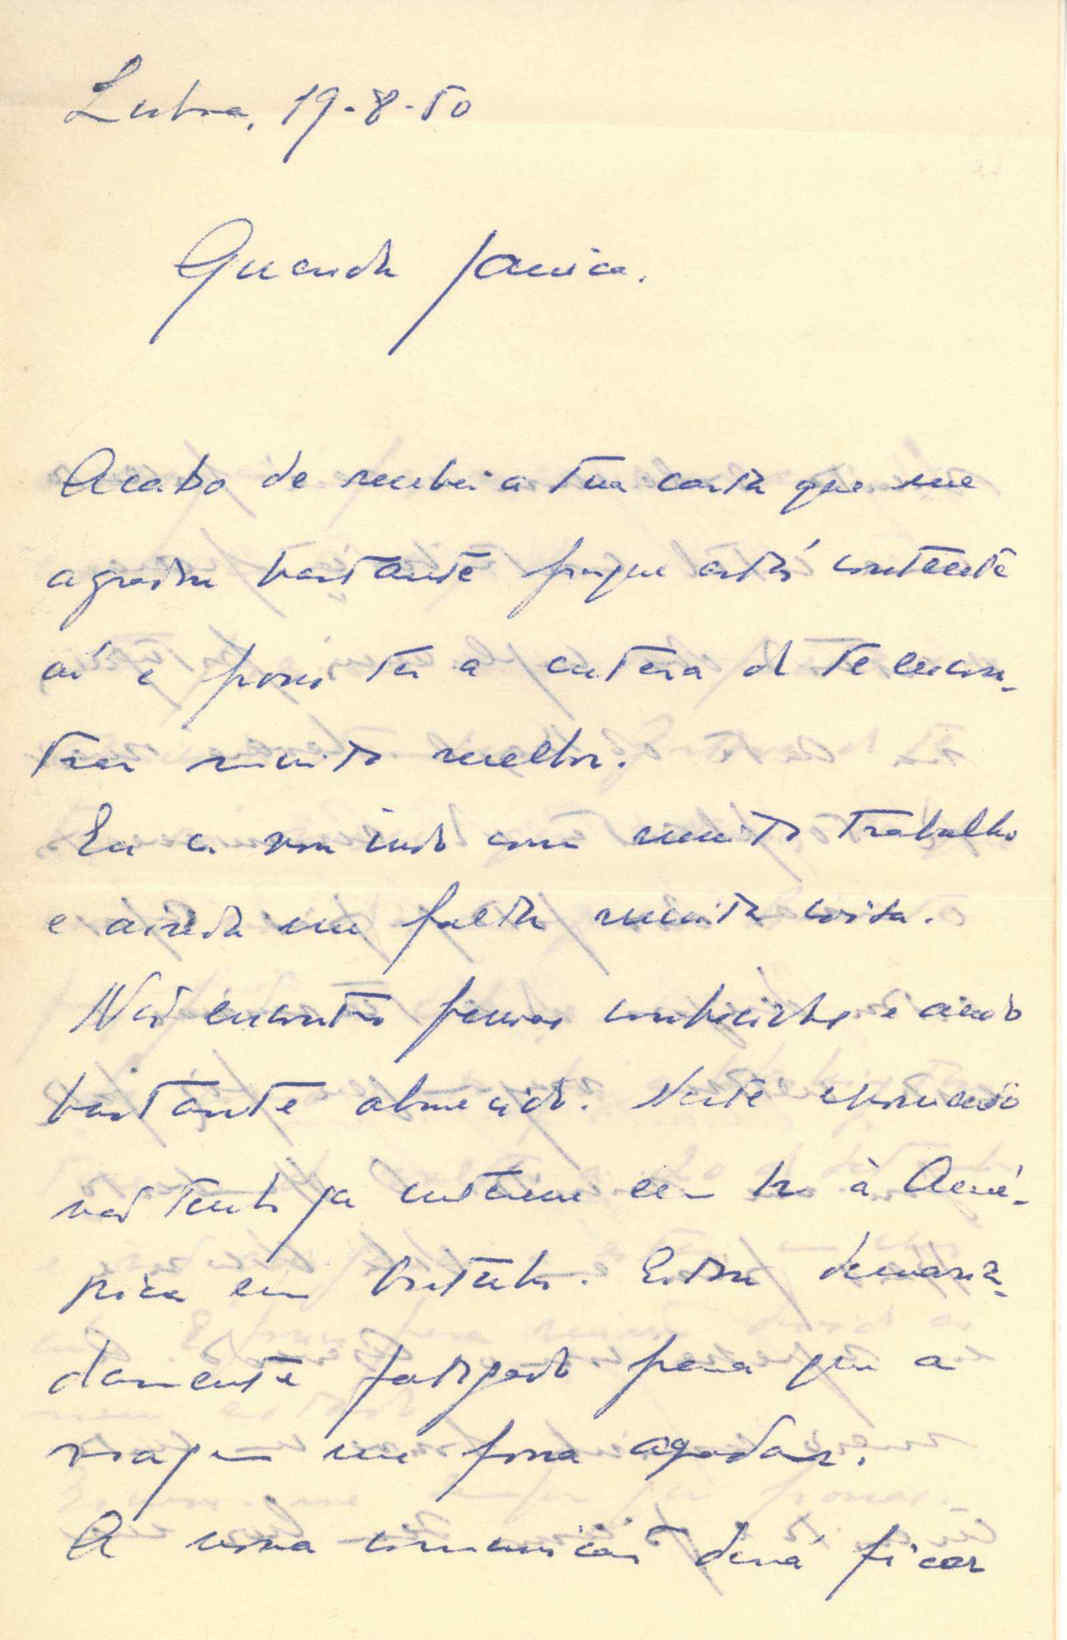 Lisboa, 19-8-50
Querida Janica.
Acabo de receber a tua carta que me
agradou bastante porque estás contente
aí e posso ter a certeza de te encon-
trar muito melhor.
Eu cá vou indo com muito trabalho
e ainda me falta muita coisa.
Não encontro pessoas conhecidas e ando
bastante aborrecido. Neste momento
não tenho já interesse em ir à Amé-
rica em Outubro. Estou demasia-
damente fatigado para que a
viagem me possa agradar.
A nossa comunicação deve ficar